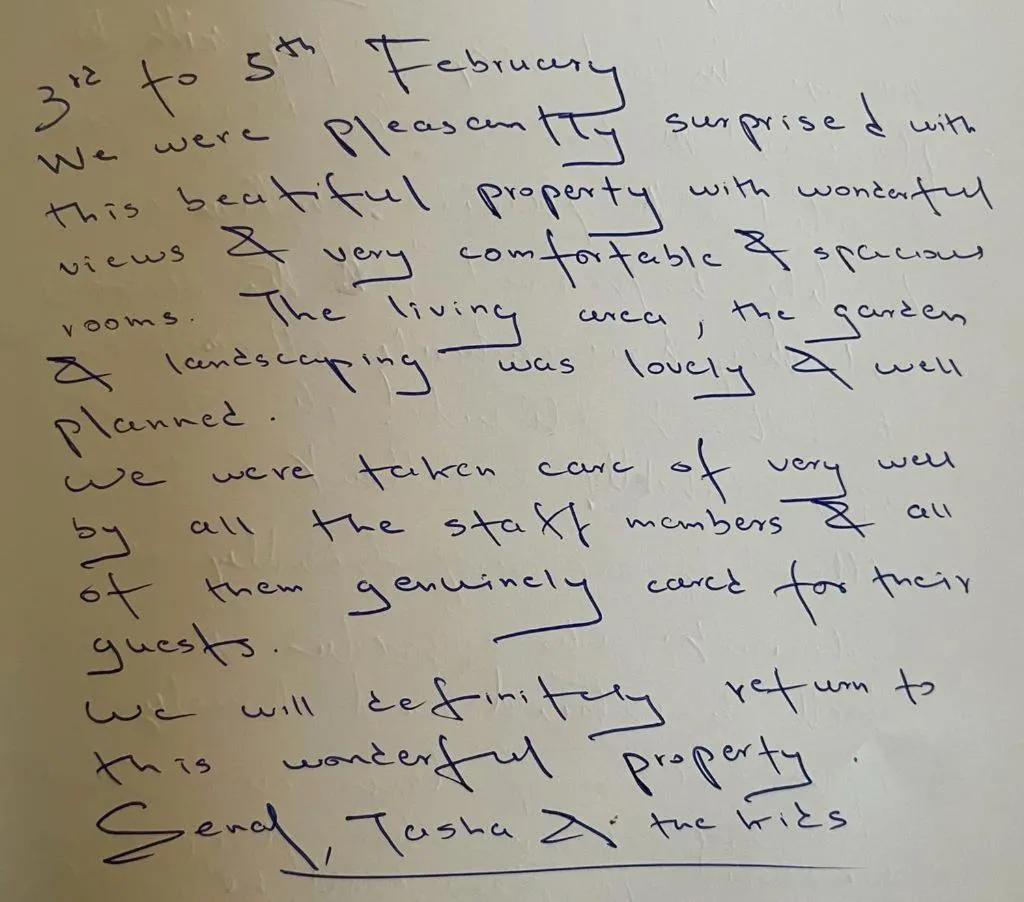 3rd to 5th February
We were pleasantly surprised with
this beautiful property with wonderful
views & very comfortable & spacious
rooms. The living area, the garden
& landscaping was lovely & well
planned.
We were taken care of very well
by all the staff members & all
of them genuinely cared for their
guests.
We will definitely return to
this wonderful property.
Tasha & the kids